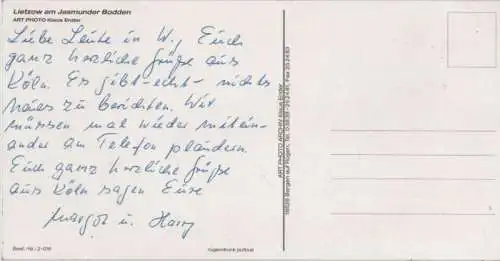 Lietzow am Jasmunder Bodden
ART PHOTO Klaus Ender
Liebe Leute in W., Euch
ganz herzliche Grüße aus
Köln. Es gibt - echt - nichts
neues zu berichten. Wir
müssen mal wieder mitein-
ander am Telefon plaudern.
Euch ganz herzliche Grüße
aus Köln sagen Eure
Margot u. Harry
Best.-Nr.: 2-016
rügendruck putbus
ART PHOTO ARCHIV Klaus Ender
18528 Bergen auf Rügen, Tel. 0 38 38 - 25 24 81, Fax 25 24 83